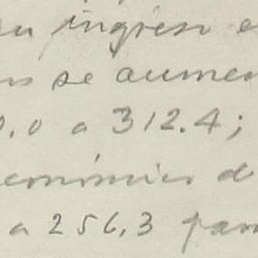 su ingreso e
se aumen
0.0 a 312.4;
económico d
a 256,3 para